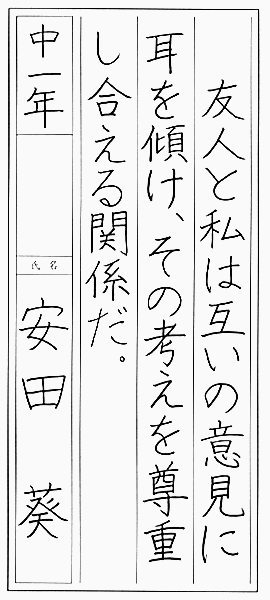 友人と私は互いの意見に
耳を傾け、その考えを尊重
し合える関係だ。
中一年
氏名
安田 葵